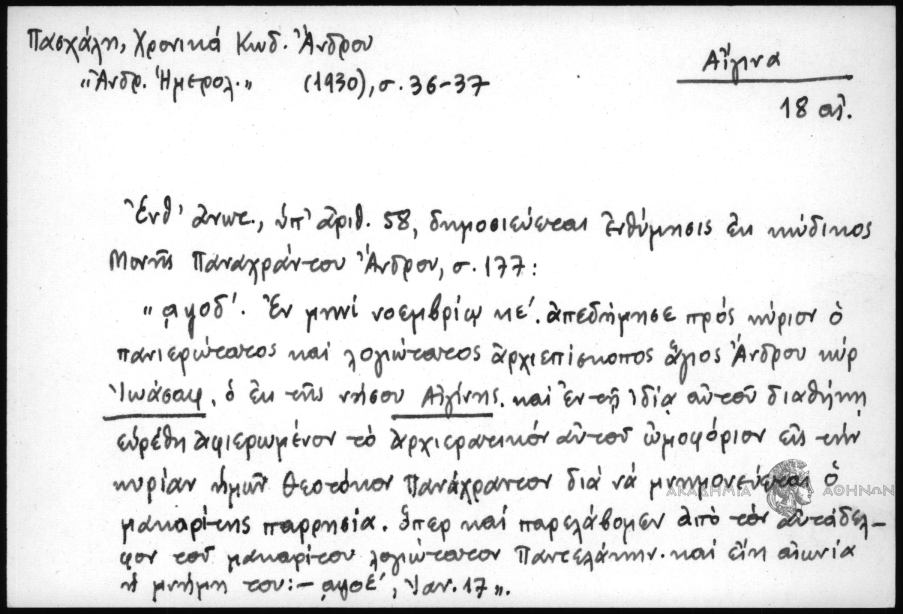 Πασχάλη, Χρονικά Κωδ. Ἄνδρου
„Ἀνδρ. Ἡμερολ.„ (1930), σ. 36-37
Αἴγινα
18 αἰ.
Ἔνθ' ἀνωτ., ὑπ' ἀριθ. 58, δημοσιεύεται ἐνθύμησις ἐκ κώδικος
Μονῆς Παναχράντου Ἄνδρου, σ. 177:
„ ͵αψοδ'. Ἐν μηνί νοεμβρίῳ κε'. ἀπεδήμησε πρός κύριον ὁ
πανιερώτατος καί λογιώτατος ἀρχιεπίσκοπος ἅγιος Ἄνδρου κύρ
Ἰωάσαφ, ὁ ἐκ τῆς νήσου Αἰγίνης. καί ἐν τῇ ἰδίᾳ αὐτοῦ διαθήκῃ
εὑρέθη ἀφιερωμένον τό ἀρχιερατικόν αὐτοῦ ὠμοφόριον εἰς τήν
κυρίαν ἡμῶν Θεοτόκον Πανάχραντον διά νά μνημονεύεται ὁ
μακαρίτης παρρησία. ὅπερ καί παρελάβομεν ἀπό τόν αὐτάδελ-
φον τοῦ μακαρίτου λογιώτατον Παντελάκην. καί εἴη αἰωνία
ἡ μνήμη του:- ͵αψοε', Ἰαν. 17„.
ΑΚΑΔΗΜΙΑ ΑΘΗΝΩΝ